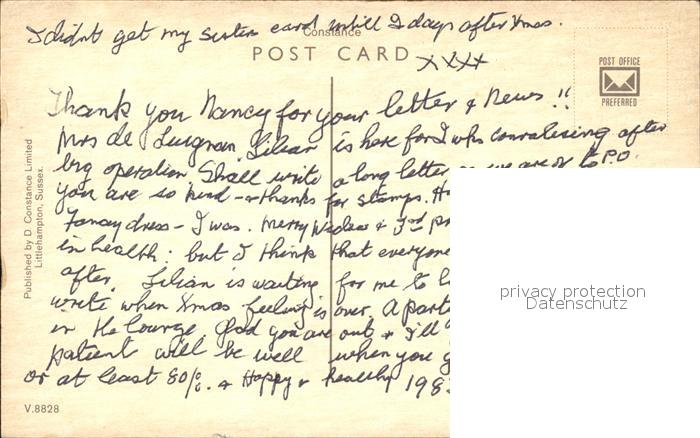 I didnt get my sisters card untill 2 days after Xmas.
Constance
POST CARD
xxxx
POST OFFICE
PREFERRED
Thank you Nancy for your letter & News !!
Mrs de Lilian is here for 2 wks after
big operation Shall write a long letter we are off to P.O.
you are so kind - & thanks for stamps. H
Fancy dress - I was. Merry Widow & 3rd pr
in health: but I think that everyone
after. Lilian is waiting for me to l
write when Xmas feeling is over. A part
in the Lounge. Glad you are out & I'll
patient will be well when you g
or at least 80%. & Happy & healthy 198
Published by D. Constance Limited
Littlehampton, Sussex.
V.8828
privacy protection
Datenschutz